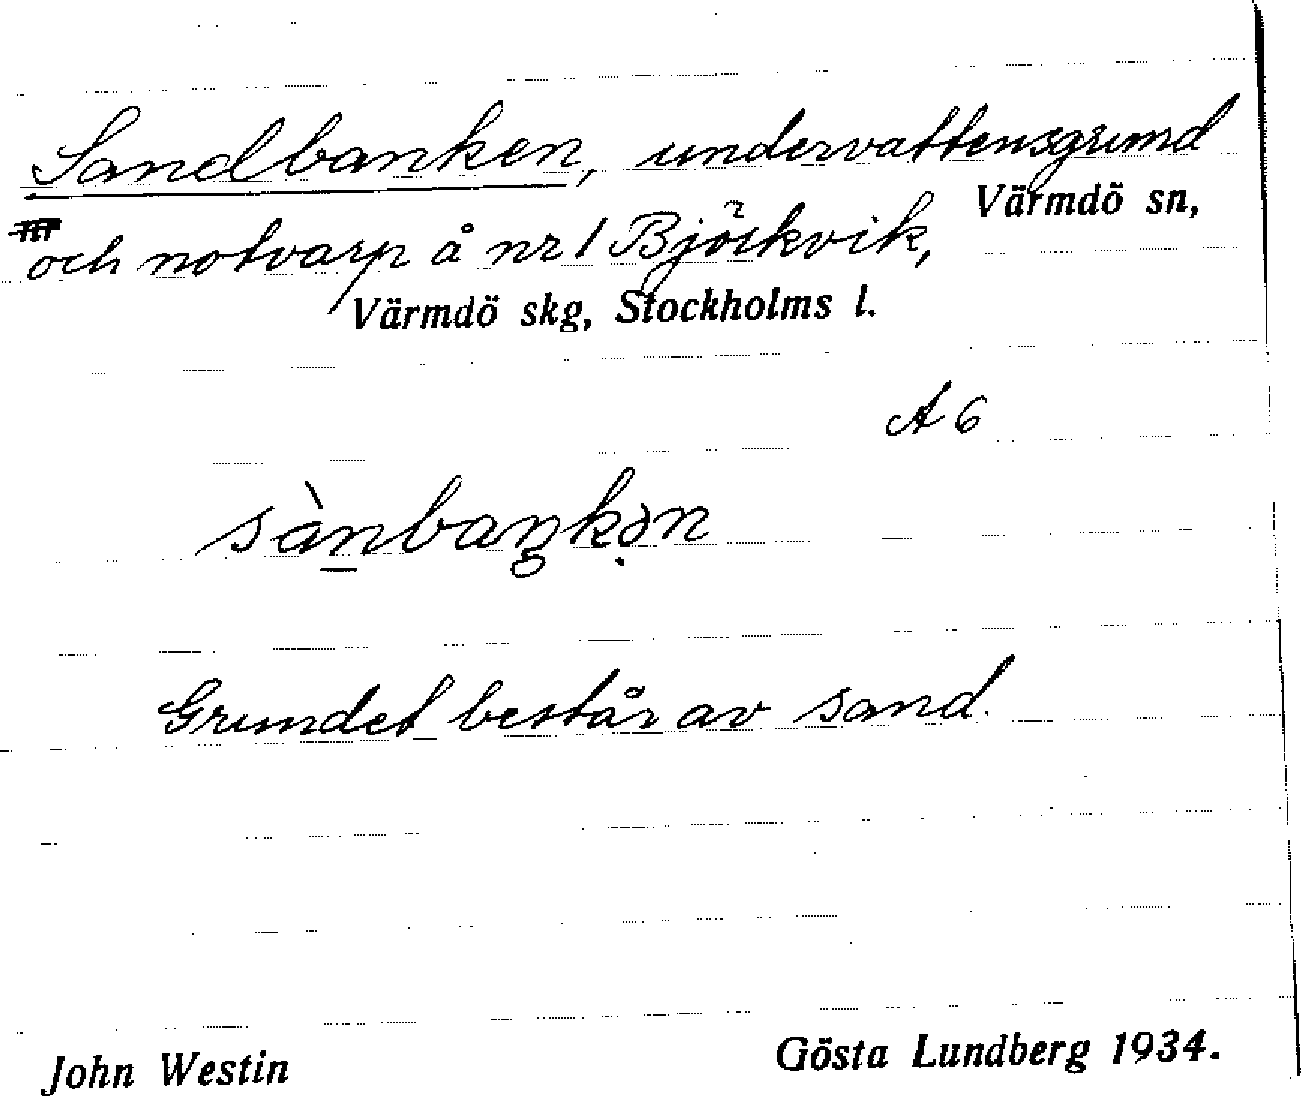 Sandbanken, undervattensgrund
Värmdö sn,
och notvarp å nr 1 Björkvik,
Värmdö skg, Stockholms l.
A 6
sànbaŋkən
Grundet består av sand.
John Westin
Gösta Lundberg 1934.